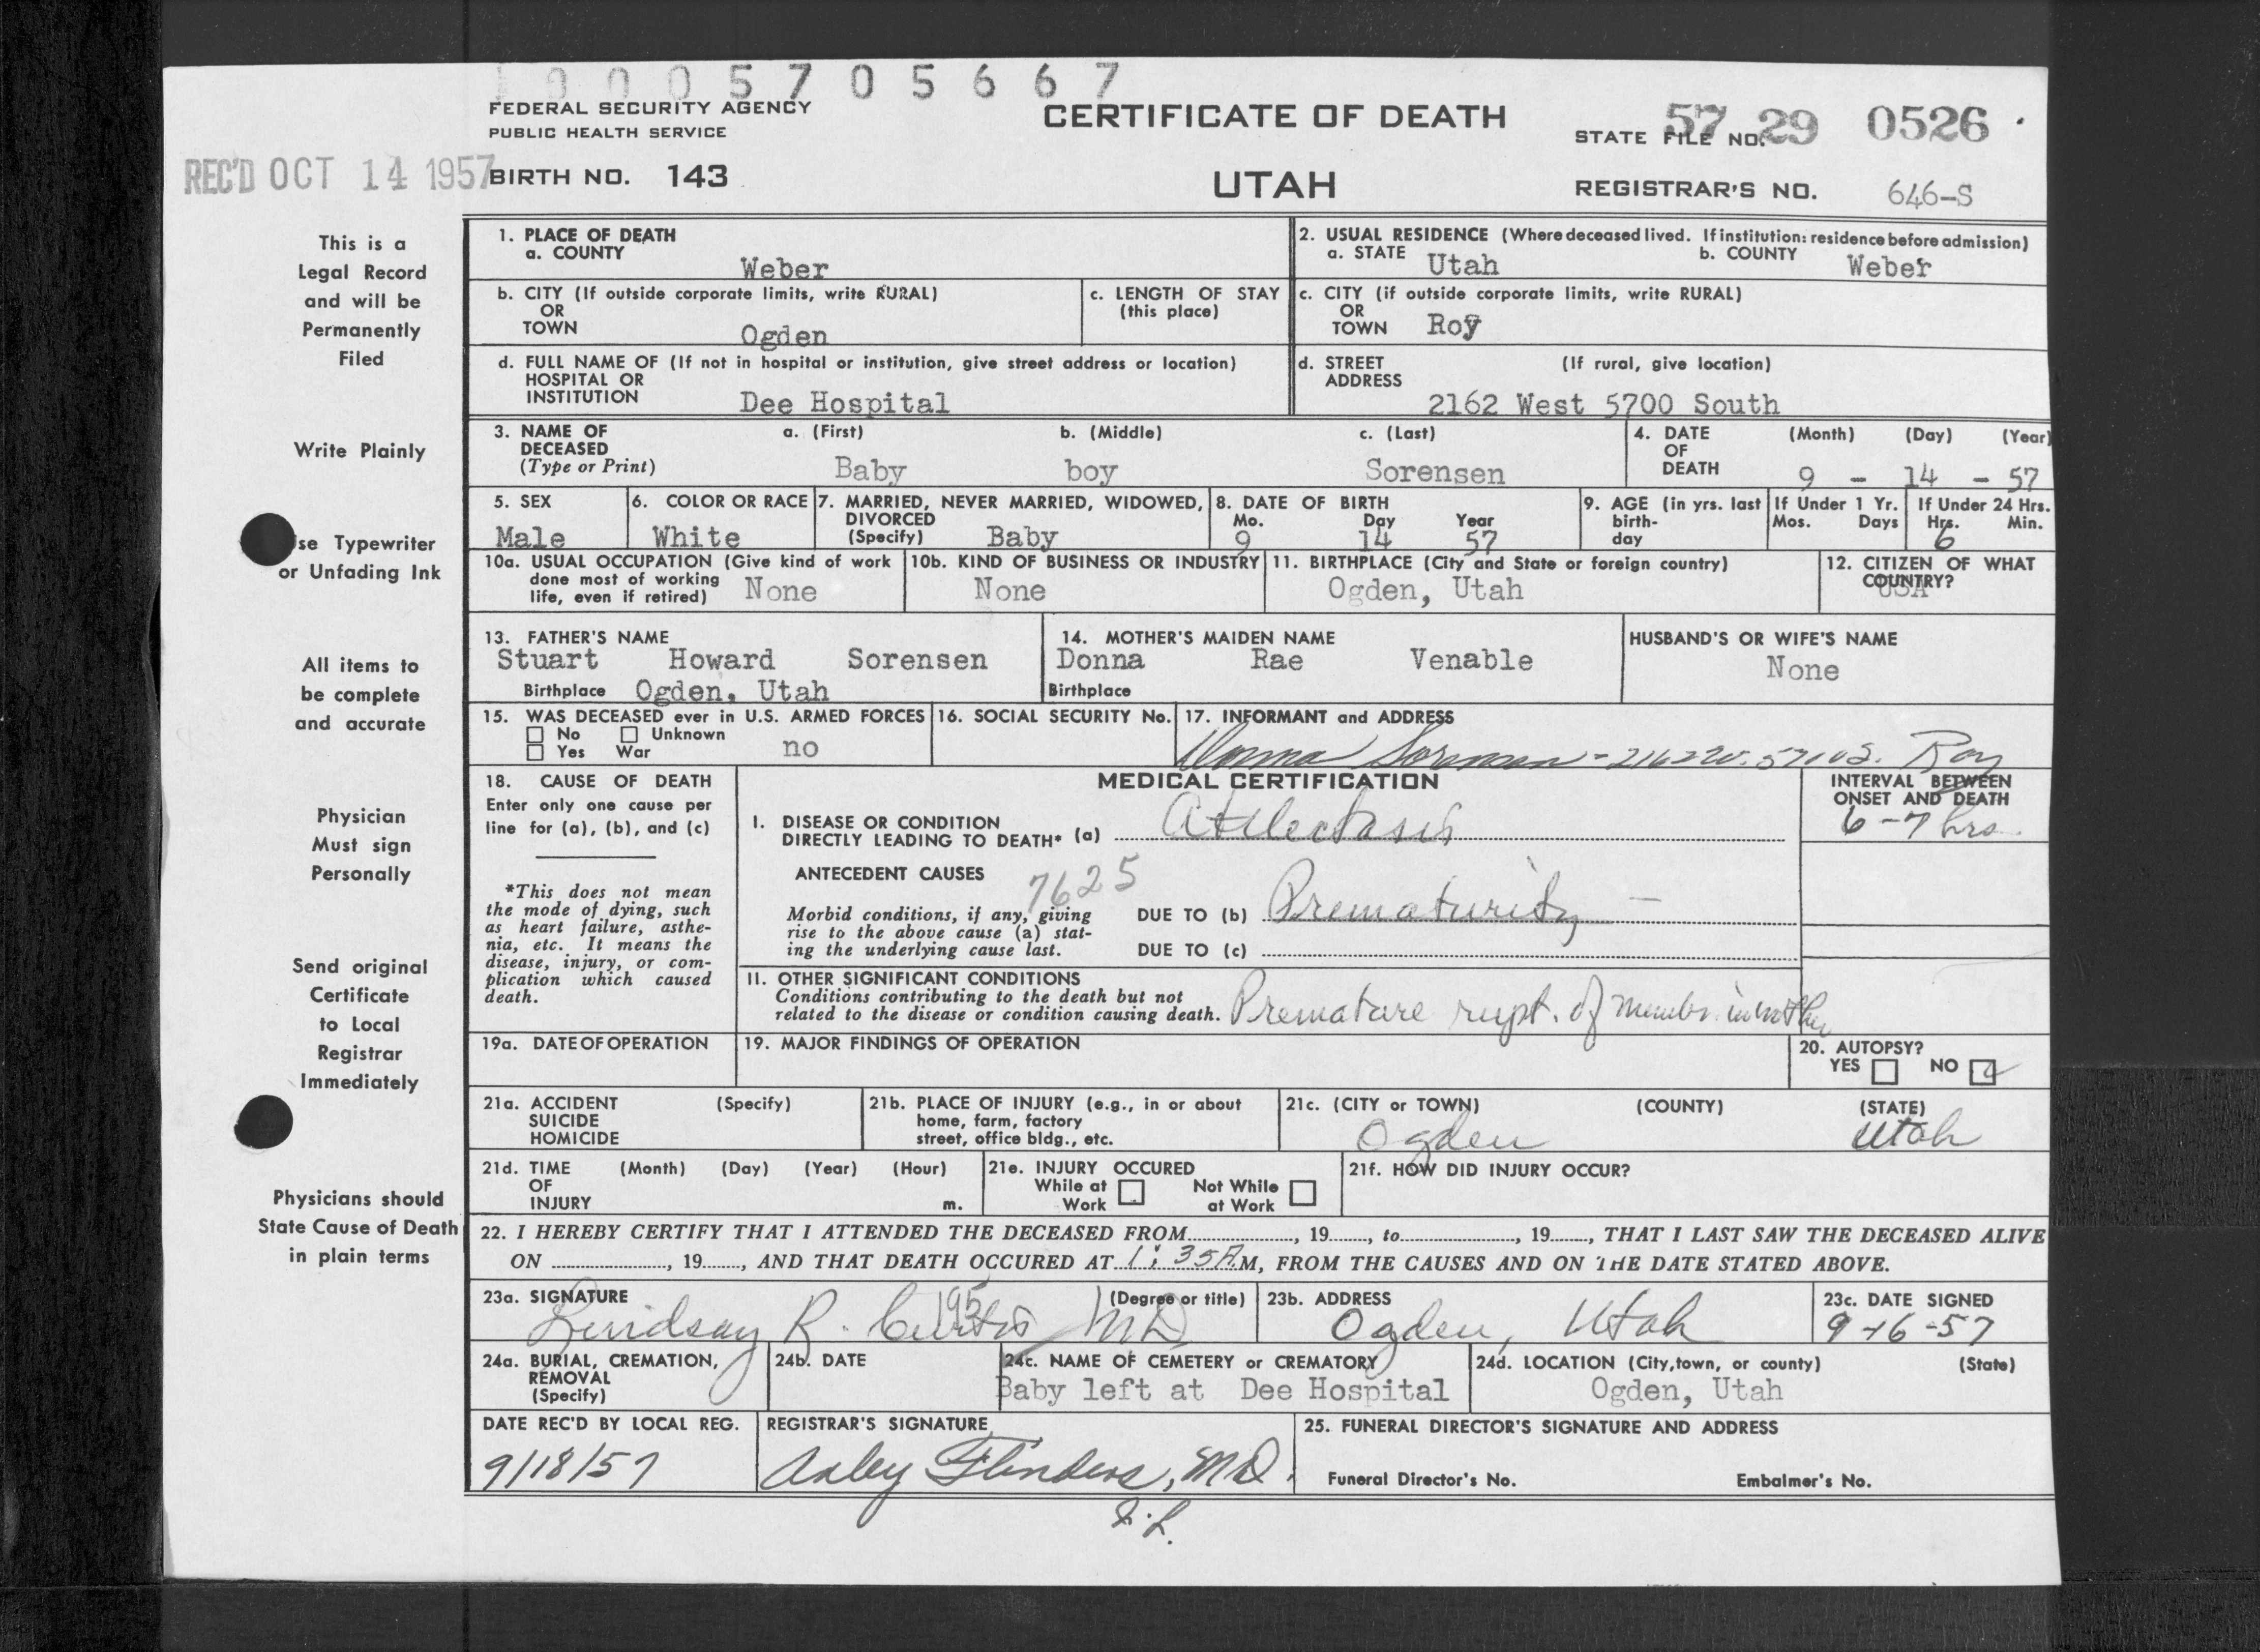 0 0 0 5 7 0 5 6 6 7
FEDERAL SECURITY AGENCY
PUBLIC HEALTH SERVICE
CERTIFICATE OF DEATH
STATE FILE NO. 57 29 0526
REC'D OCT 14 1957
BIRTH NO. 143
UTAH
REGISTRAR'S NO. 646-S
This is a
Legal Record
and will be
Permanently
Filed
Write Plainly
se Typewriter
or Unfading Ink
All items to
be complete
and accurate
Physician
Must sign
Personally
Send original
Certificate
to Local
Registrar
Immediately
Physicians should
State Cause of Death
in plain terms
1. PLACE OF DEATH
a. COUNTY
Weber
2. USUAL RESIDENCE (Where deceased lived. If institution: residence before admission)
a. STATE Utah b. COUNTY Weber
b. CITY (If outside corporate limits, write RURAL)
OR
TOWN Ogden
c. LENGTH OF STAY
(this place)
c. CITY (if outside corporate limits, write RURAL)
OR
TOWN Roy
d. FULL NAME OF (If not in hospital or institution, give street address or location)
HOSPITAL OR
INSTITUTION Dee Hospital
d. STREET (If rural, give location)
ADDRESS
2162 West 5700 South
3. NAME OF a. (First) b. (Middle) c. (Last)
DECEASED
(Type or Print) Baby boy Sorensen
4. DATE (Month) (Day) (Year)
OF
DEATH 9 - 14 - 57
5. SEX
Male
6. COLOR OR RACE
White
7. MARRIED, NEVER MARRIED, WIDOWED,
DIVORCED
(Specify) Baby
8. DATE OF BIRTH
Mo. Day Year
9 14 57
9. AGE (in yrs. last
birth-
day
If Under 1 Yr.
Mos. Days
If Under 24 Hrs.
Hrs. Min.
6
10a. USUAL OCCUPATION (Give kind of work
done most of working
life, even if retired) None
10b. KIND OF BUSINESS OR INDUSTRY
None
11. BIRTHPLACE (City and State or foreign country)
Ogden, Utah
12. CITIZEN OF WHAT
COUNTRY?
USA
13. FATHER'S NAME
Stuart Howard Sorensen
Birthplace Ogden, Utah
14. MOTHER'S MAIDEN NAME
Donna Rae Venable
Birthplace
HUSBAND'S OR WIFE'S NAME
None
15. WAS DECEASED ever in U.S. ARMED FORCES
No Unknown
Yes War no
16. SOCIAL SECURITY No.
17. INFORMANT and ADDRESS
Donna Sorensen - 2162 W. 5700 S. Roy
18. CAUSE OF DEATH
Enter only one cause per
line for (a), (b), and (c)
*This does not mean
the mode of dying, such
as heart failure, asthe-
nia, etc. It means the
disease, injury, or com-
plication which caused
death.
MEDICAL CERTIFICATION
I. DISEASE OR CONDITION
DIRECTLY LEADING TO DEATH* (a) Atelectasis
INTERVAL BETWEEN
ONSET AND DEATH
6-7 hrs.
ANTECEDENT CAUSES 7625
Morbid conditions, if any, giving
rise to the above cause (a) stat-
ing the underlying cause last.
DUE TO (b) Prematurity -
DUE TO (c)
II. OTHER SIGNIFICANT CONDITIONS
Conditions contributing to the death but not
related to the disease or condition causing death. Premature rupt. of membr. in mother
19a. DATE OF OPERATION
19. MAJOR FINDINGS OF OPERATION
20. AUTOPSY?
YES NO
21a. ACCIDENT (Specify)
SUICIDE
HOMICIDE
21b. PLACE OF INJURY (e.g., in or about
home, farm, factory
street, office bldg., etc.
21c. (CITY or TOWN) (COUNTY) (STATE)
Ogden Utah
21d. TIME (Month) (Day) (Year) (Hour)
OF
INJURY m.
21e. INJURY OCCURED
While at Not While
Work at Work
21f. HOW DID INJURY OCCUR?
22. I HEREBY CERTIFY THAT I ATTENDED THE DECEASED FROM , 19 , to , 19 , THAT I LAST SAW THE DECEASED ALIVE
ON , 19 , AND THAT DEATH OCCURED AT 1:35 A M, FROM THE CAUSES AND ON THE DATE STATED ABOVE.
23a. SIGNATURE (Degree or title)
Lindsay R. Curtis MD
195
23b. ADDRESS
Ogden, Utah
23c. DATE SIGNED
9-16-57
24a. BURIAL, CREMATION,
REMOVAL
(Specify)
24b. DATE
24c. NAME OF CEMETERY or CREMATORY
Baby left at Dee Hospital
24d. LOCATION (City, town, or county) (State)
Ogden, Utah
DATE REC'D BY LOCAL REG.
9/18/57
REGISTRAR'S SIGNATURE
Flinders, MD.
25. FUNERAL DIRECTOR'S SIGNATURE AND ADDRESS
Funeral Director's No. Embalmer's No.